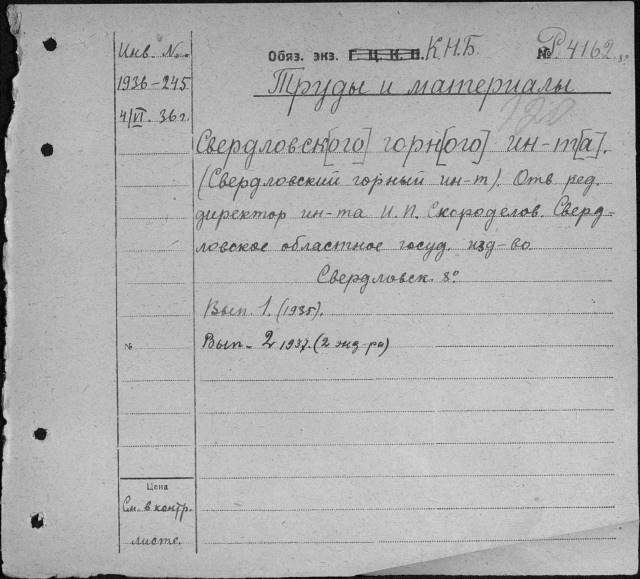 Инв. №.
1936-245
4/VI. 36 г.
Обяз. экз. Г. Ц. К. П. К.Н.Б.
№ Р. 4162. 8°
Труды и материалы
120
Свердловск[ого] горн[ого] ин-т[а].
(Свердловский горный ин-т). Отв ред.
директор ин-та И. П. Скороделов. Сверд-
ловское областное госуд. изд-во.
Свердловск. 8°
Вып. 1. (1935).
№
Вып. 2 1937. (2 экз-ра)
Цена
См. в контр.
листе.